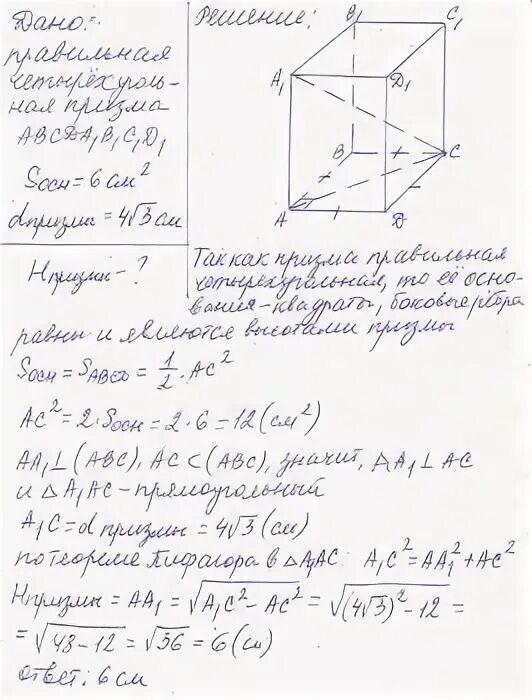 Дано:
правильная
четырёхуголь-
ная призма
ABCDA₁B₁C₁D₁
Sосн = 6 см²
dпризмы = 4√3 см
Hпризмы - ?
Решение:
B₁
C₁
A₁
D₁
B
C
A
D
Так как призма правильная
четырехугольная, то её осно-
вания - квадраты, боковые рёбра
равны и являются высотами призмы
Sосн = SABCD = 1/2 · AC²
AC² = 2 · Sосн = 2 · 6 = 12 (см²)
AA₁ ⊥ (ABC), AC ⊂ (ABC), значит, AA₁ ⊥ AC
и △ A₁AC - прямоугольный
A₁C = d призмы = 4√3 (см)
по теореме Пифагора в △A₁AC: A₁C² = AA₁² + AC²
Hпризмы = AA₁ = √(A₁C² - AC²) = √((4√3)² - 12) =
= √(48 - 12) = √36 = 6 (см)
ответ: 6 см